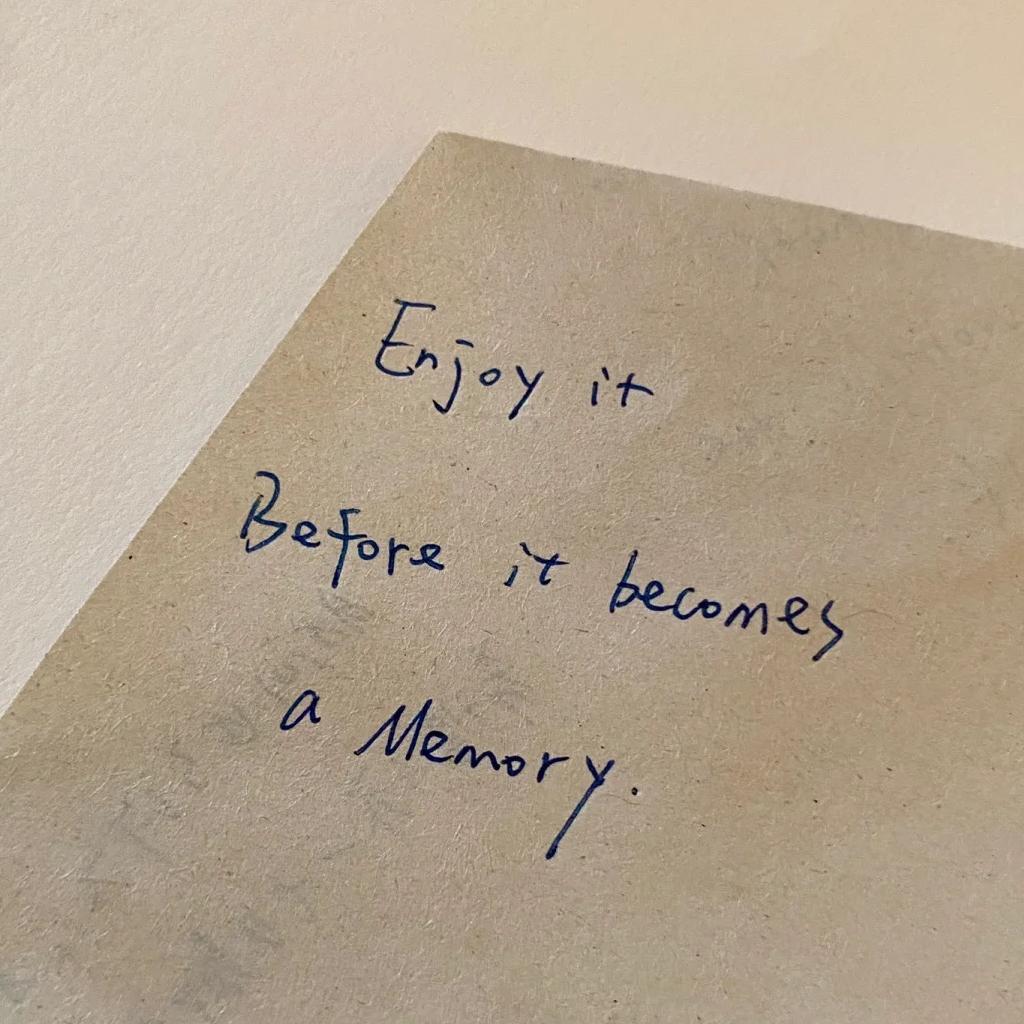 Enjoy it
Before it becomes
a Memory.